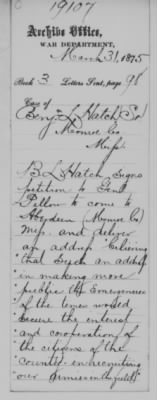 19107
Archive Office,
WAR DEPARTMENT,
March 31, 1875
Book 3 Letters Sent, page 98
Case of
Benj. L Hatch Sr
Monroe Co
Miss.
B L Hatch signs
petition to Genl
Pillow to come to
Aberdeen (Monroe Co)
Miss and deliver
an address "believing
that such an address
in making more
public the Emergencies
of the times would
secure the interest
and cooperation of
the citizens of the
county in recruiting
our armies